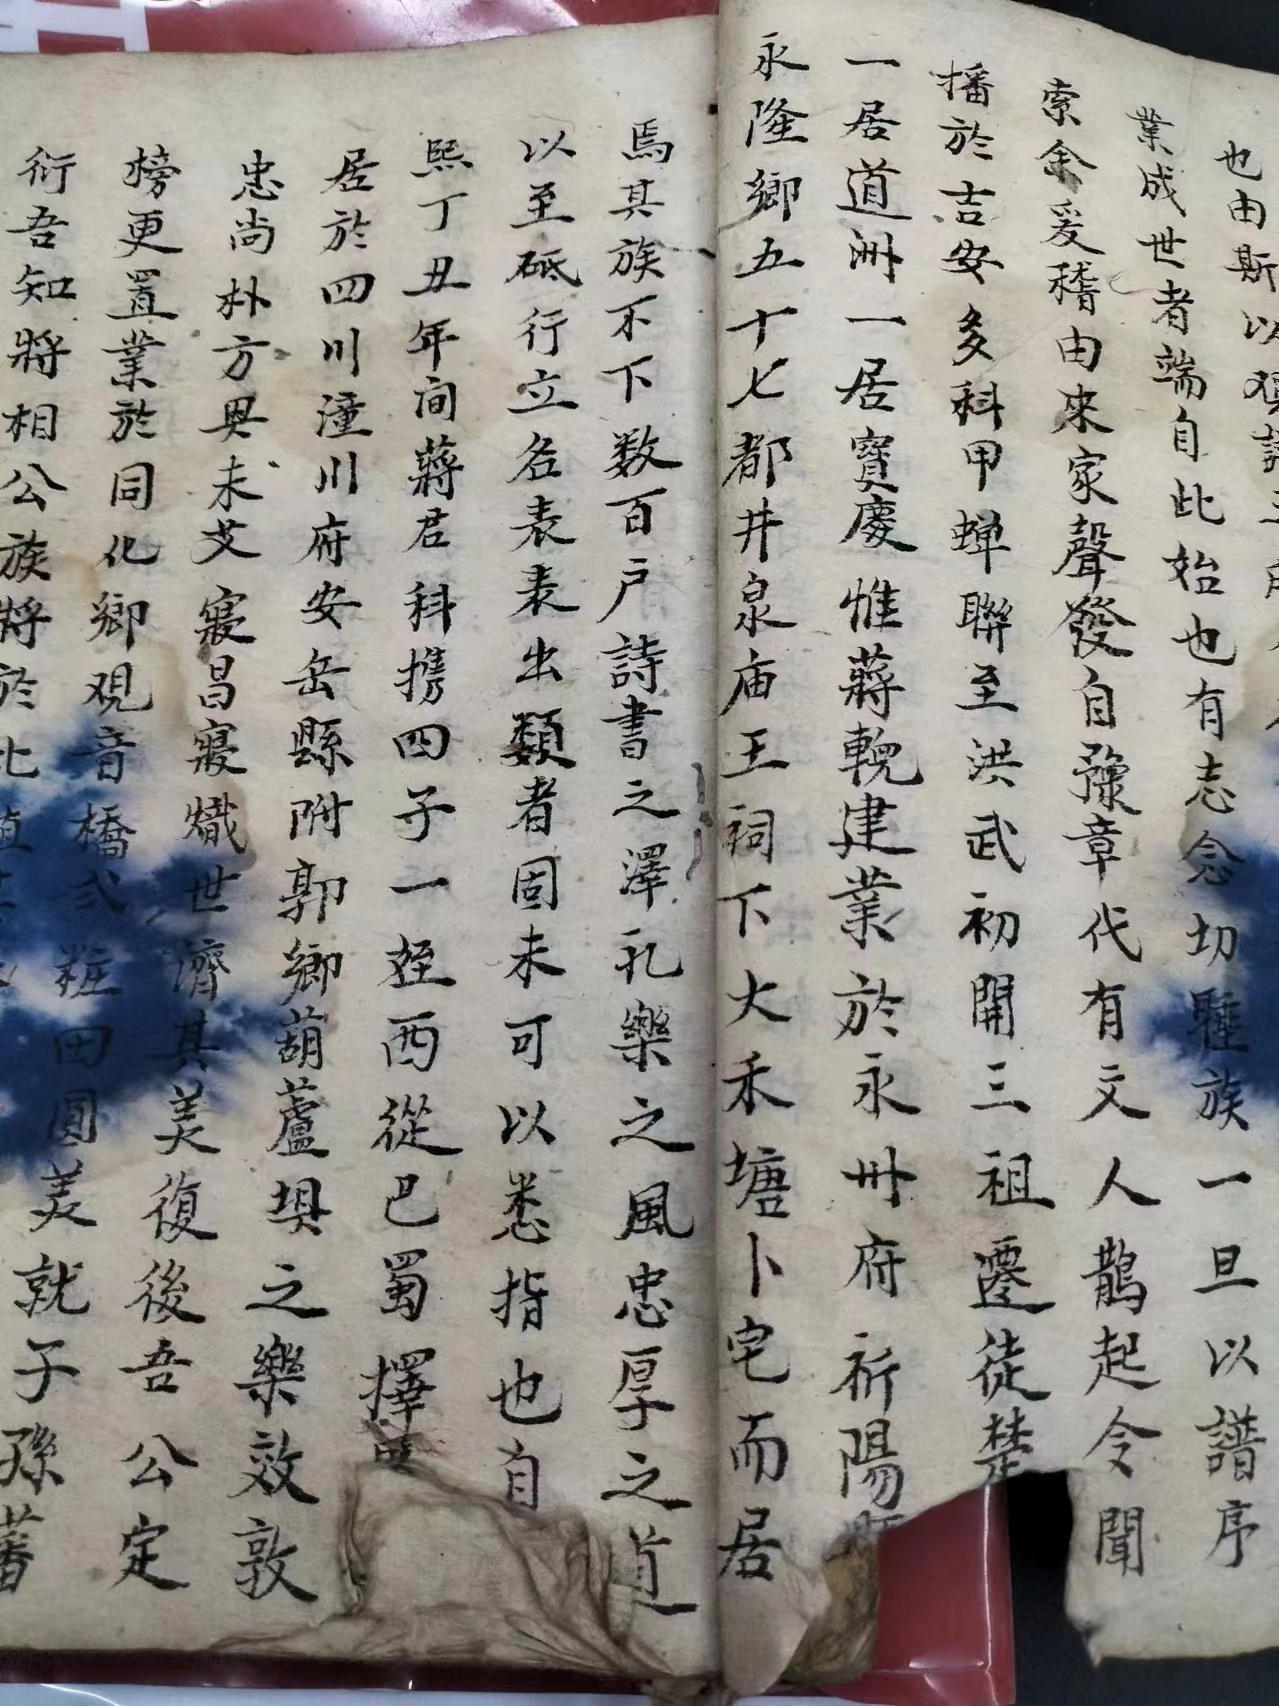 也由斯以
業成世者端自此始也有志念切騹族一旦以譜序
索余爰稽由來家聲發自豫章代有文人鵲起令聞
播於吉安多科甲蝉聯至洪武初開三祖遷徒楚
一居道洲一居寶慶惟蔣輗建業於永州府祈陽
永隆鄉五十七都井泉庙王祠下大禾塘卜宅而居
焉其族不下数百户詩書之澤礼樂之風忠厚之道
以至砥行立名表表出類者固未可以悉指也自
熙丁丑年间蔣君科携四子一姪西從巴蜀擇
居於四川潼川府安岳縣附郭鄉葫蘆埧之樂效敦
忠尚朴方興未艾寢昌寢熾世濟其美復後吾公定
榜更置業於同化鄉观音橋弍粧田圓美就子孫蕃
衍吾知將相公族將於此